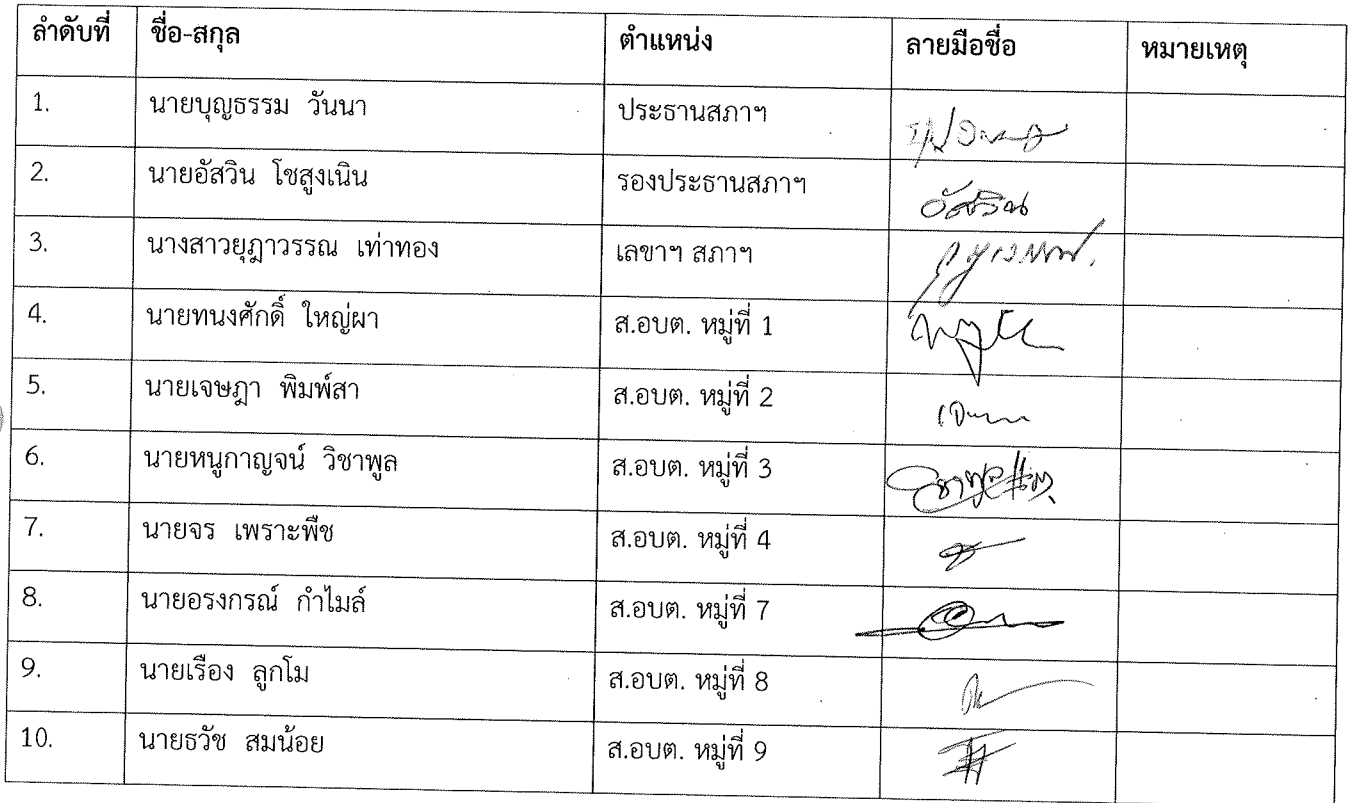 ลำดับที่ ชื่อ-สกุล ตำแหน่ง ลายมือชื่อ หมายเหตุ
1. นายบุญธรรม วันนา ประธานสภาฯ
2. นายอัสวิน โชสูงเนิน รองประธานสภาฯ อัสวิน
3. นางสาวยุฎาวรรณ เท่าทอง เลขาฯ สภาฯ
4. นายทนงศักดิ์ ใหญ่ผา ส.อบต. หมู่ที่ 1
5. นายเจษฎา พิมพ์สา ส.อบต. หมู่ที่ 2
6. นายหนูกาญจน์ วิชาพูล ส.อบต. หมู่ที่ 3
7. นายจร เพราะพืช ส.อบต. หมู่ที่ 4
8. นายอรงกรณ์ กำไมล์ ส.อบต. หมู่ที่ 7
9. นายเรือง ลูกโม ส.อบต. หมู่ที่ 8
10. นายธวัช สมน้อย ส.อบต. หมู่ที่ 9